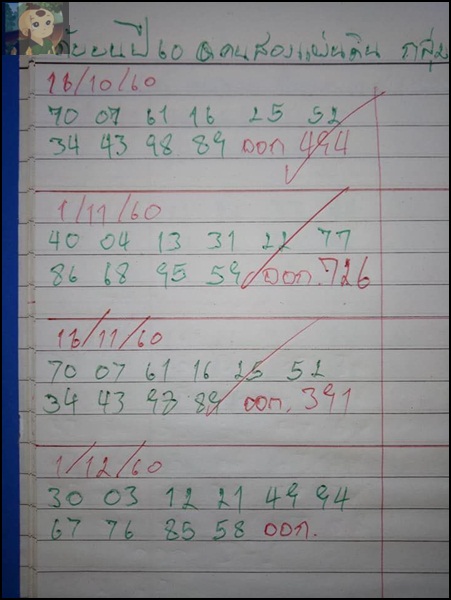 กันยนปี 60 คนสองแผ่นดิน ราสุม
16/10/60
70 07 61 16 25 52
34 43 98 89 ออก 494
1/11/60
40 04 13 31 22 77
86 68 95 59 ออก.726
16/11/60
70 07 61 16 25 52
34 43 98 89 ออก. 391
1/12/60
30 03 12 21 49 94
67 76 85 58 ออก.